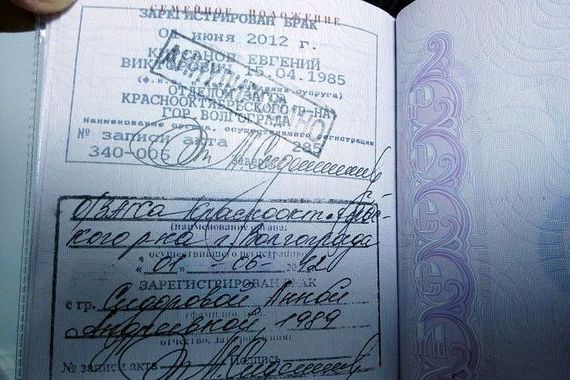 СЕМЕЙНОЕ ПОЛОЖЕНИЕ
ЗАРЕГИСТРИРОВАН БРАК
01 июня 2012 г.
ЕВГЕНИЙ
15.04.1985
супруга)
КРАСНООКТЯБРЬСКОГО Р-НА
ГОР. ВОЛГОГРАДА
Наименование органа, осуществившего регистрацию
№ записи акта 285
340-006
О/ЗАГСа Краснооктябрьс-
кого р-на г. Волгограда
(наименование органа,
осуществившего регистрацию)
"01" 06 2012
ЗАРЕГИСТРИРОВАН БРАК
с гр. Сидоровой Анной
Андреевной, 1989
отчество, дата рождения
№ записи акта Подпись